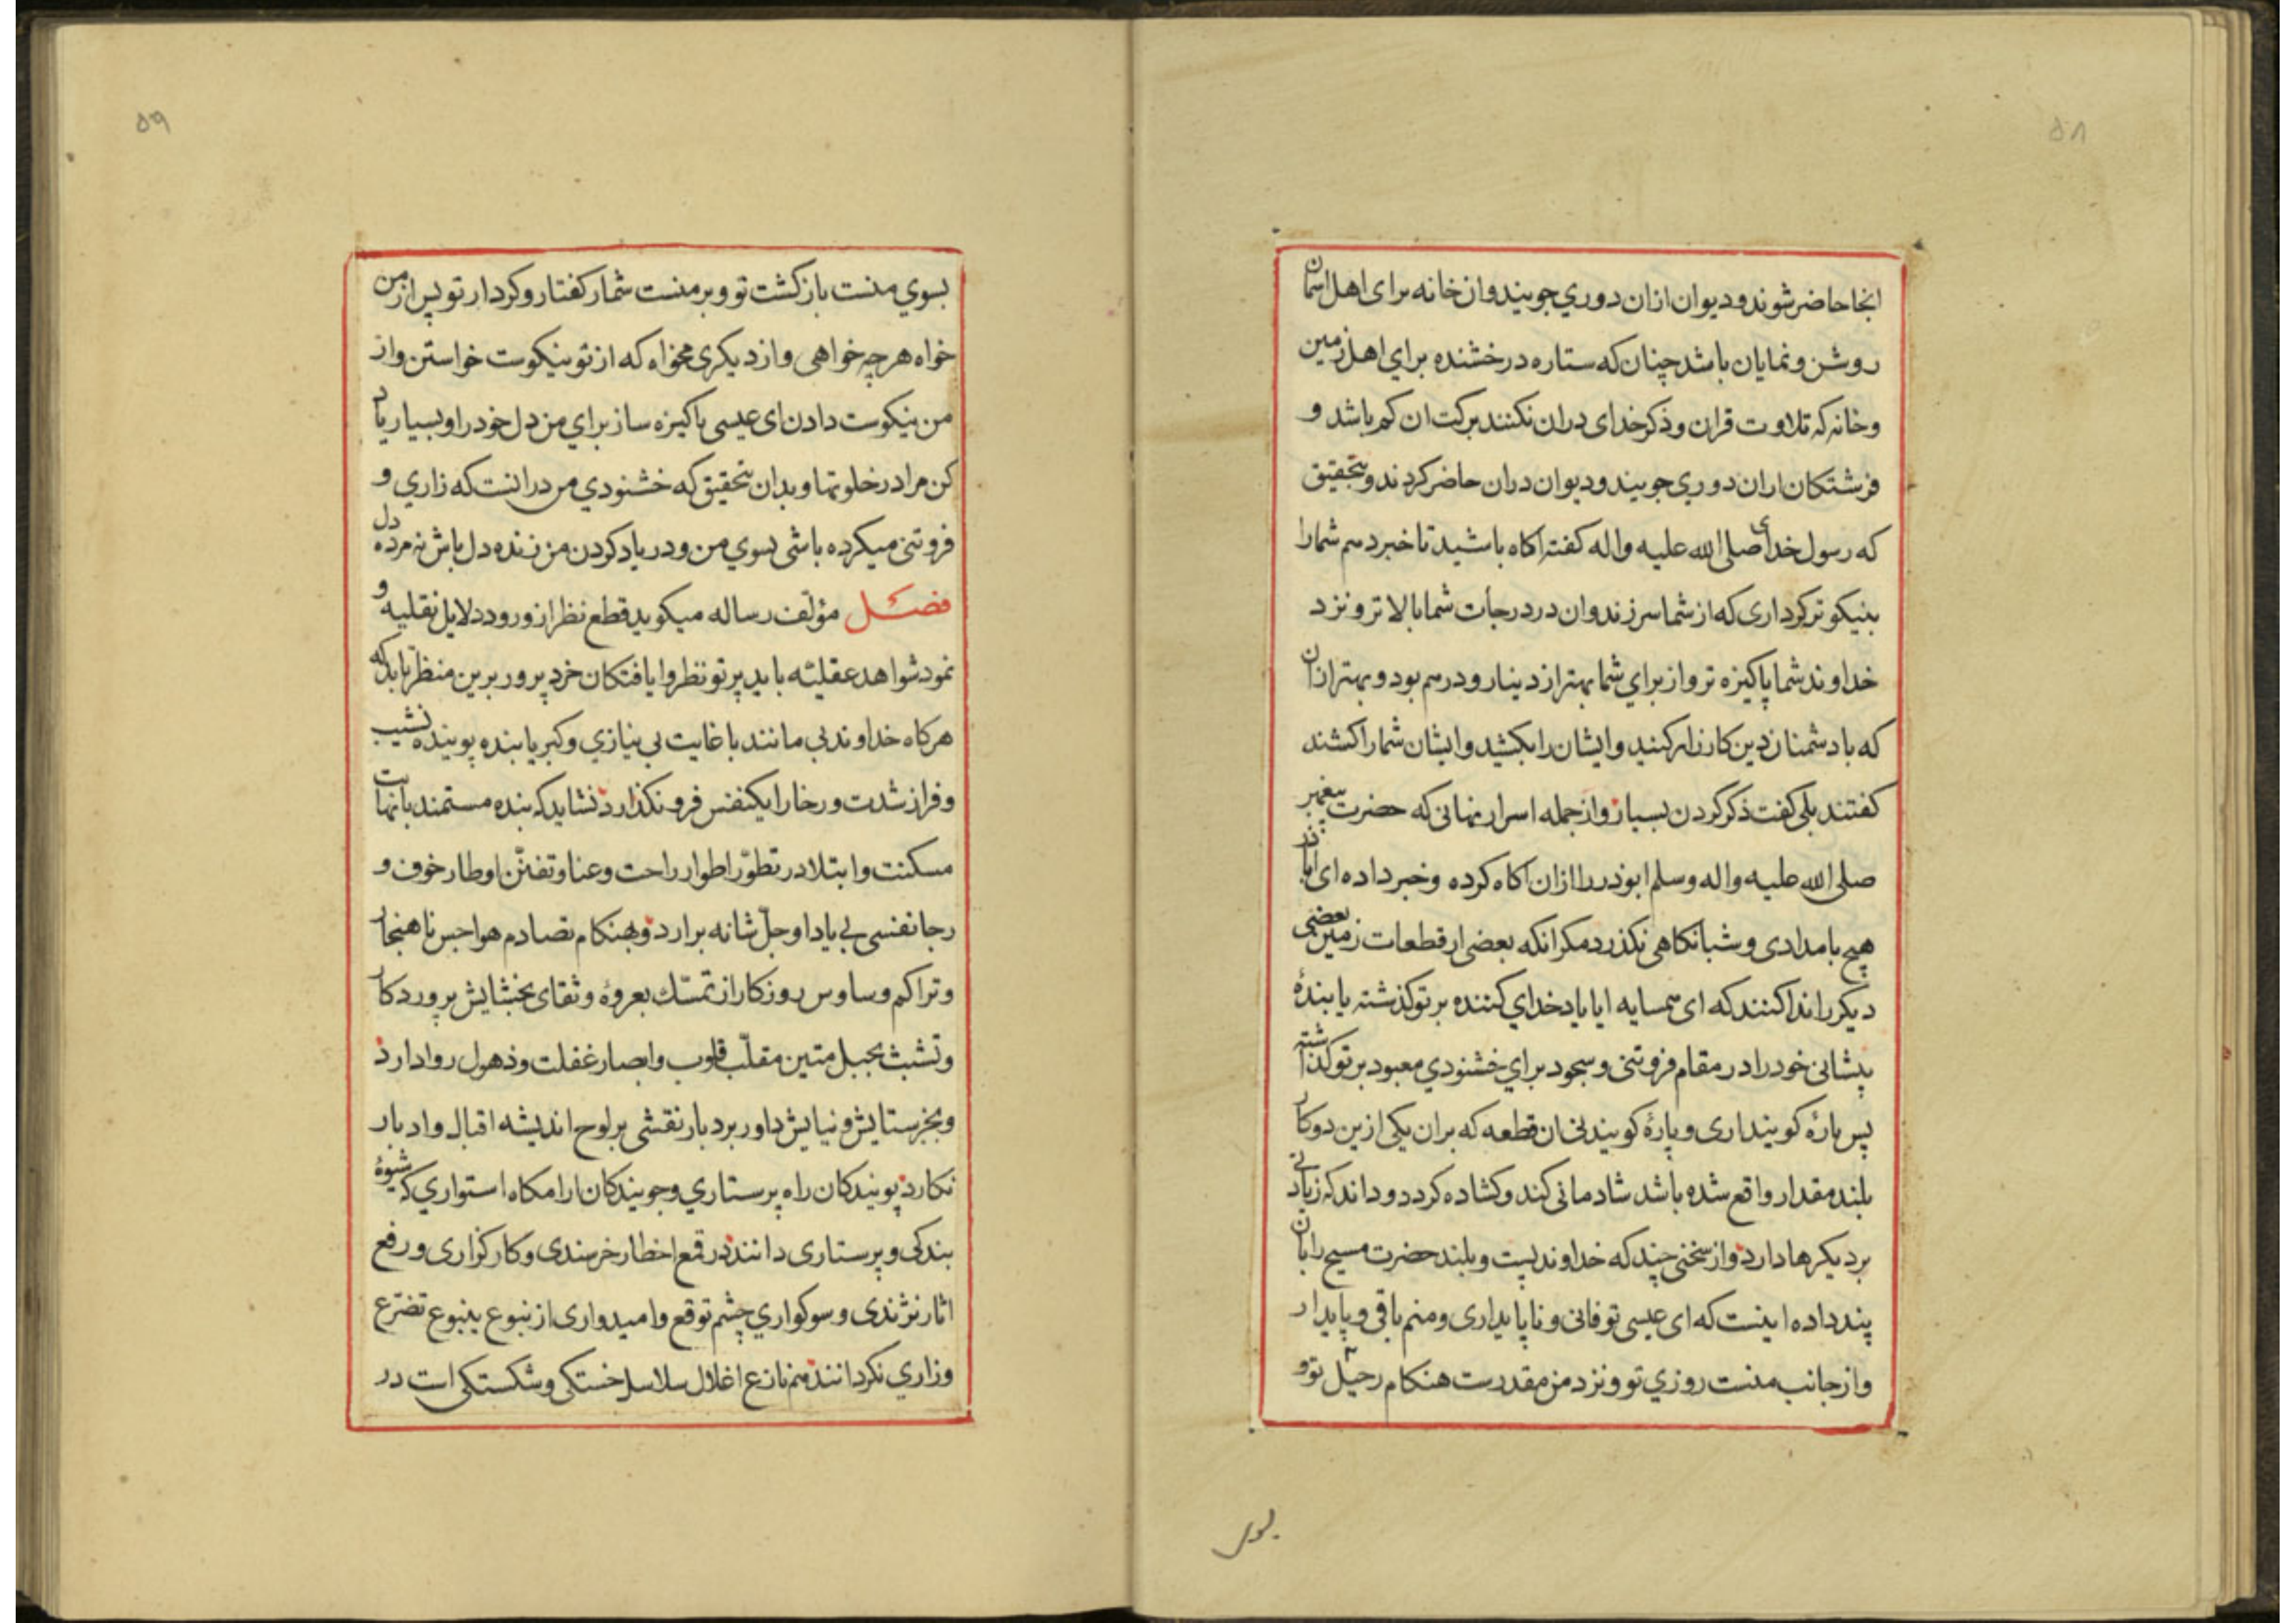 ۵۸
انجا حاضر شوند و دیوان ازان دوري جویند وان خانه برای اهل اسمان
روشن و نمایان باشد چنان که ستاره درخشنده براي اهل زمین
و خانه که تلاوت قران و ذکر خدای دران نکنند برکت ان کم باشد و
فرشتکان ازان دوري جویند و دیوان دران حاضر کردند و بتحقیق
که رسول خدای صلی الله علیه واله کفته اکاه باشید تا خبر دهم شما را
بنیکوتر کرداری که از شما سر زند وان در درجات شما بالاتر و نزد
خداوند شما پاکیزه تر و از براي شما بهتر از دینار و درهم بود و بهتر ازان
که با دشمنان دین کارزار کنید و ایشان را بکشید و ایشان شما را کشند
کفتند بلی کفت ذکر کردن بسیار و از جمله اسرار نهانی که حضرت پیغمبر
صلی الله علیه واله وسلم ابوذر را ازان اکاه کرده و خبر داده ای اباذر
هیچ بامدادی و شبانکاهی نکذرد مکر انکه بعضی از قطعات زمین بعضی
دیکر را ندا کنند که ای همسایه ایا یاد خداي کننده بر تو کذشته یا بندهٔ
پیشانی خود را در مقام فروتنی و سجود براي خشنودي معبود بر تو کذاشته
پس پارهٔ کویند اری و پارهٔ کویند نی ان قطعه که بران یکی ازین دو کار
بلند مقدار واقع شده باشد شادمانی کند و کشاده کردد و داند که زیادتی
بر دیکرها دارد و از سخنی چند که خداوند پست و بلند حضرت مسیح را بان
پند داده اینست که ای عیسی تو فانی و ناپایداری و منم باقی و پایدار
و از جانب منست روزي تو و نزد من مقدرست هنکام رحیل تو و
بسوی
۵۹
بسوي منست بازکشت تو و بر منست شمار کفتار و کردار تو پس از من
خواه هر چه خواهی و از دیکری مخواه که از تو نیکوست خواستن و از
من نیکوست دادن ای عیسی پاکیزه ساز براي من دل خود را و بسیار یاد
کن مرا در خلوتها و بدان بتحقیق که خشنودي من در انست که زاري و
فروتنی میکرده باشی بسوي من و در یاد کردن من زنده دل باش نه مرده دل
فصل مؤلف رساله میکوید قطع نظر از ورود دلایل نقلیه و
نمود شواهد عقلیّه باید پرتو نظر وایافتکان خرد پرور برین منظر تابد که
هرکاه خداوند بی مانند با غایت بی نیازي و کبریا بنده پوینده نشیب
و فراز شدت و رخا را یکنفس فرو نکذارد نشاید که بنده مستمند با نهایت
مسکنت و ابتلا در تطوّر اطوار راحت و عنا و تفنّن اوطار خوف و
رجا نفسی بی یاد او جلّ شانه برارد و بهنکام تصادم هواجس ناهنجار
و تراکم وساوس روزکار از تمسّك بعروهٔ وثقای بخشایش پروردکار
و تشبث بحبل متین مقلّب قلوب و ابصار غفلت و ذهول روا دارد
و بجز ستایش و نیایش داور بردبار نقشی بر لوح اندیشه اقبال و ادبار
نکارد پویندکان راه پرستاري و جویندکان ارامکاه استواري که شیوهٔ
بندکی و پرستاری دانند در قمع اخطار خرسندی و کارکزاری و رفع
اثار نژندی و سوکواري چشم توقع و امیدواری از نبوع ینبوع تضرّع
و زاري نکردانند منم نازع اغلال سلاسل خستکی و شکستکی است در